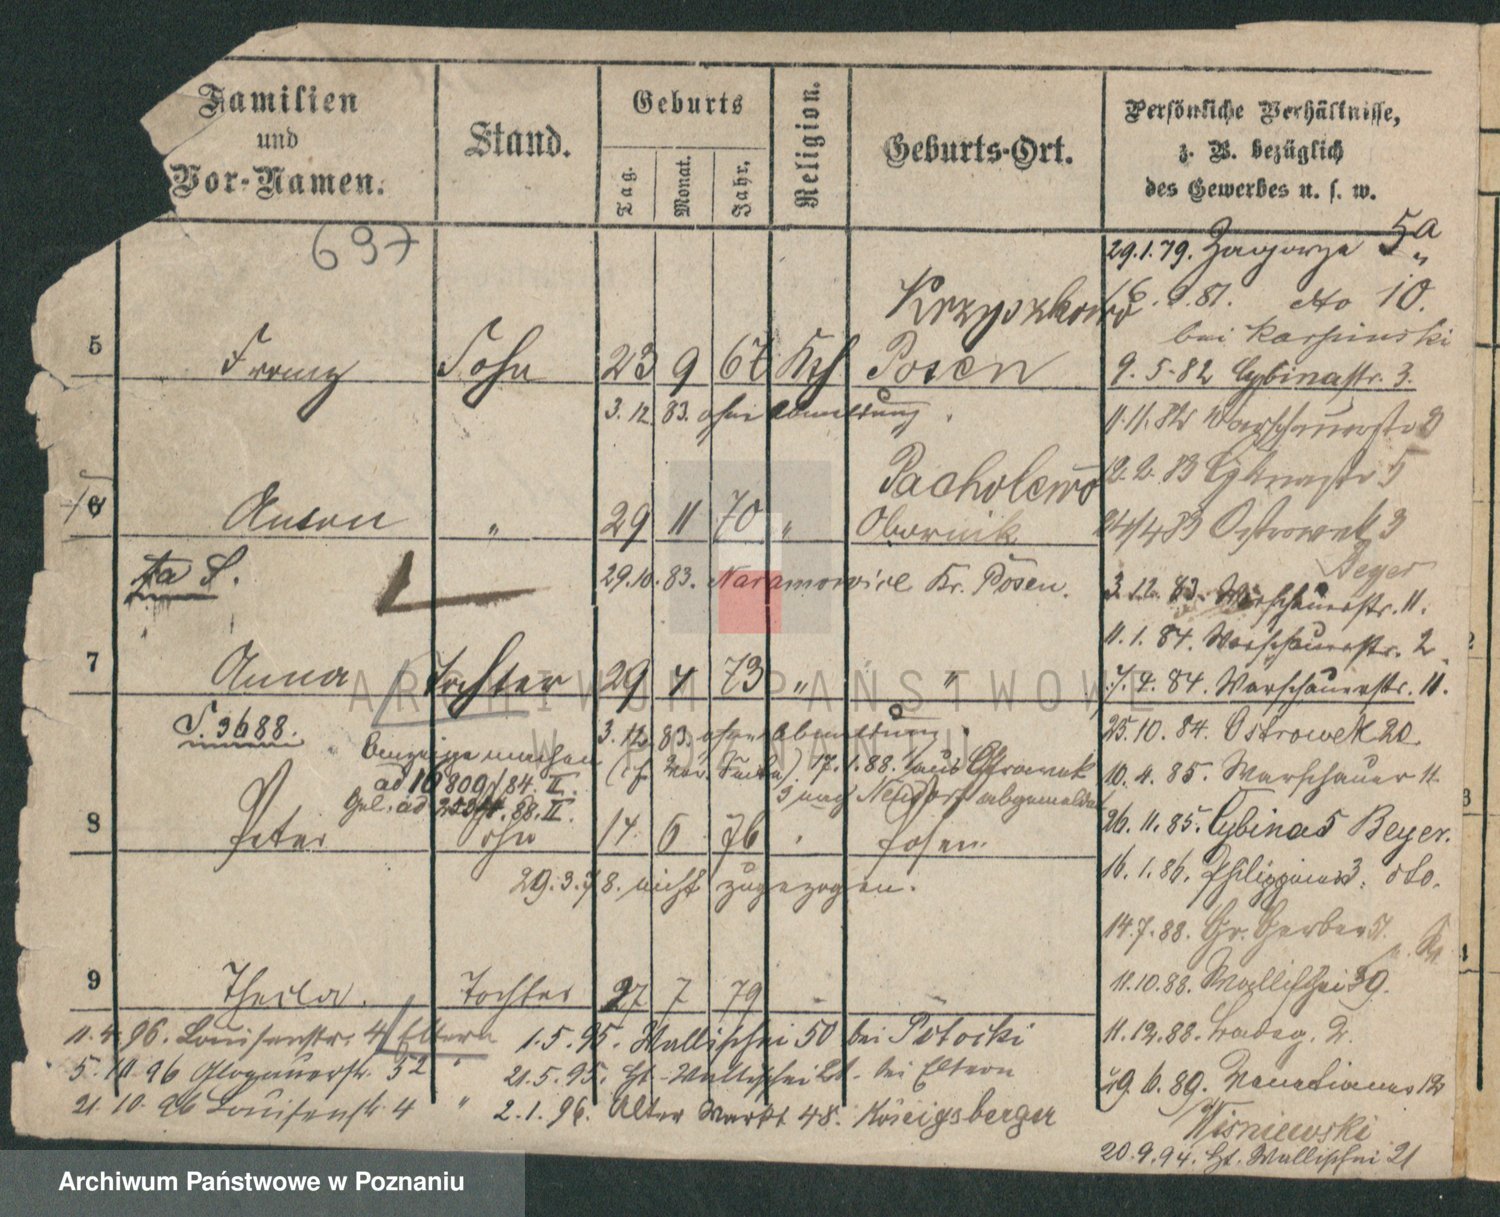 Familien
und
Vor-Namen.
Stand.
Geburts
Tag.
Monat.
Jahr.
Religion.
Geburts-Ort.
Persönliche Verhältnisse,
z. B. bezüglich
des Gewerbes u. s. w.
697
29.1.79. Zagorze 5a
81. dto 10.
bei Karpinski
Krzyszkowo
5 Franz Sohn 23 9 67 Kth Posen
9.5.82 Cybinastr. 3.
3.12.83. ohne Abmeldung.
11.11.82 Warschauerstr
Pacholewo
12.2.83 Cybinastr 5
6 Anton " 29 11 70 " Obornik
24/4 83 Ostrowek 3
Beyer
ta S.
29.10.83. Naramowice Kr. Posen.
3.12.83. Warschauerstr. 11.
11.1.84. Warschauerstr. 2.
7 Anna Tochter 29 4 73 " "
7.4.84. Warschauerstr. 11.
S. 3688.
3.12.83. ohne Abmeldung.
25.10.84. Ostrowek 20
17.1.88. aus Ostrowek
10.4.85. Warschauer 11
ad 16809/84. II.
3 nach Neudorf abgemeldet
88. II.
8 Peter Sohn 14 6 76 " Posen.
26.11.85. Cybina 5 Beyer.
29.3.78. nicht zugezogen.
16.1.86. dto.
14.7.88. Gr. Gerber
9 Tochter 27 7 79 "
11.10.88. Wallischei 39.
11.4.96. Louisenstr. 4 Eltern
1.5.95. Wallischei 50 bei Potocki
11.12.88. 2.
96 Glogauerstr. 52 "
21.5.95. bei Eltern
89. Venetianer
21.10.96 Louisenstr 4 "
2.1.96. Alter Markt 48. Königsberger
Wisniewski
20.9.94. Wallischei 21
ARCHIWUM PAŃSTWOWE
W POZNANIU
Archiwum Państwowe w Poznaniu